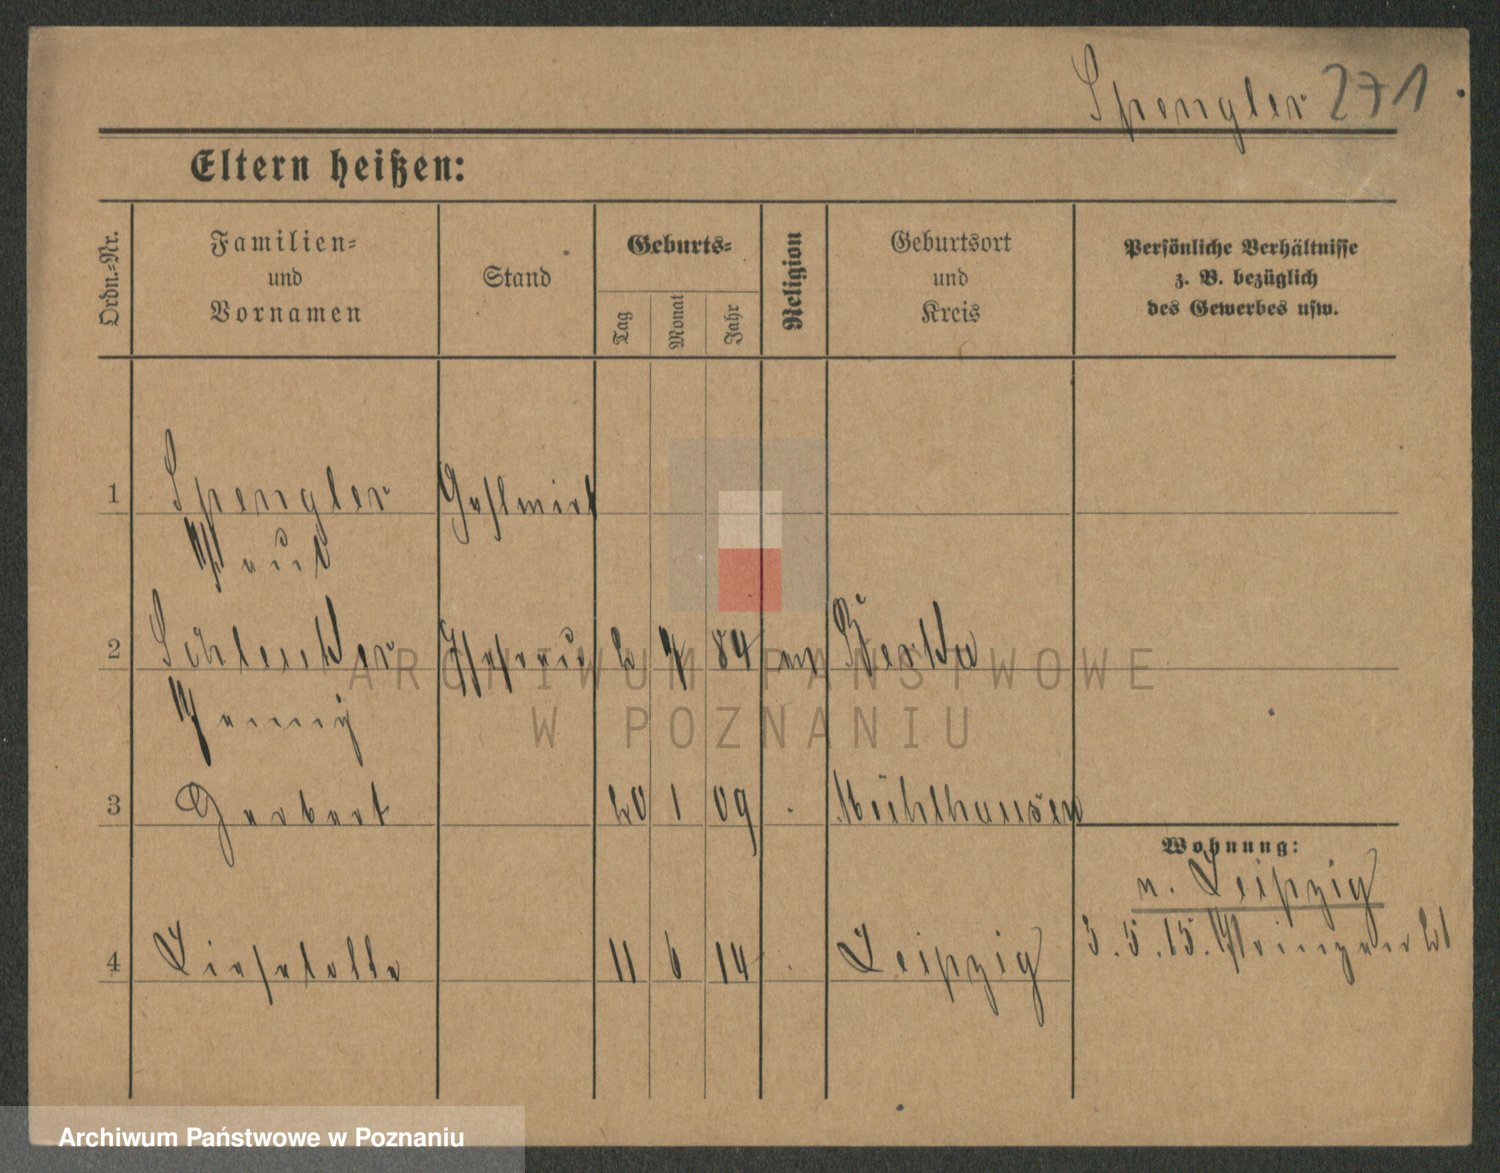 Spengler 271
Eltern heißen:
Ordn.-Nr.
Familien-
und
Vornamen
Stand
Geburts-
Tag
Monat
Jahr
Religion
Geburtsort
und
Kreis
Persönliche Verhältnisse
z. B. bezüglich
des Gewerbes usw.
1 Spengler Gastwirt
Paul
2 Ehefrau 2 7 84 Berka
3 Herbert 20 1 09 . Mühlhausen
Wohnung:
n. Leipzig
4 Lieselotte 11 6 14 . Leipzig
3.5.15.
ARCHIWUM PAŃSTWOWE
W POZNANIU
Archiwum Państwowe w Poznaniu